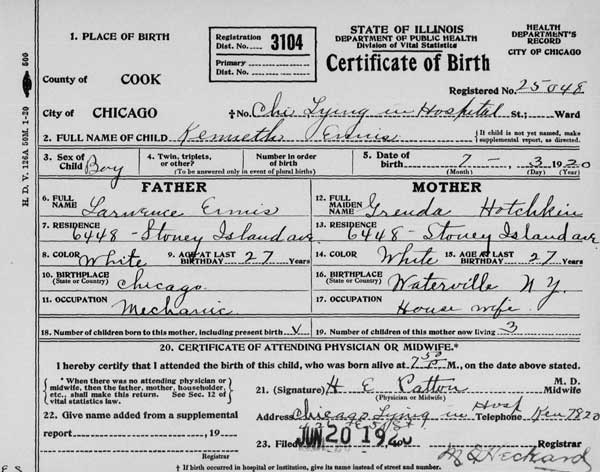 STATE OF ILLINOIS
DEPARTMENT OF PUBLIC HEALTH
Division of Vital Statistics
Certificate of Birth
HEALTH DEPARTMENT'S RECORD
CITY OF CHICAGO
1. PLACE OF BIRTH
Registration Dist. No. 3104
Primary Dist. No.
County of COOK
Registered No. 25048
City of CHICAGO † No. Chi Lying in Hospital St.; Ward
2. FULL NAME OF CHILD Kenneth Ennis { If child is not yet named, make supplemental report, as directed.
3. Sex of Child Boy
4. Twin, triplets, or other? Number in order of birth
(To be answered only in event of plural births)
5. Date of birth 7 - 3 1920
(Month) (Day) (Year)
FATHER
6. FULL NAME Larwence Ennis
7. RESIDENCE 6448 - Stoney Island ave
8. COLOR White 9. AGE AT LAST BIRTHDAY 27 Years
10. BIRTHPLACE (State or Country) Chicago
11. OCCUPATION Mechanic
MOTHER
12. FULL MAIDEN NAME Grenda Hotchkin
13. RESIDENCE 6448 - Stoney Island ave
14. COLOR White 15. AGE AT LAST BIRTHDAY 27 Years
16. BIRTHPLACE (State or Country) Waterville N Y.
17. OCCUPATION House wife
18. Number of children born to this mother, including present birth V
19. Number of children of this mother now living 3
20. CERTIFICATE OF ATTENDING PHYSICIAN OR MIDWIFE.*
I hereby certify that I attended the birth of this child, who was born alive at 7 50 P M., on the date above stated.
{ * When there was no attending physician or midwife, then the father, mother, householder, etc., shall make this return. See Sec. 12 of vital statistics law. }
21. (Signature) H E Patton M. D. Midwife
(Physician or Midwife)
Address Chicago Lying in Hosp Telephone Ken 7820
22. Give name added from a supplemental report , 19
Registrar
23. Filed JUN 20 19 Registrar
† If birth occurred in hospital or institution, give its name instead of street and number.
H. D. V. 126A 50M. 1-20 500